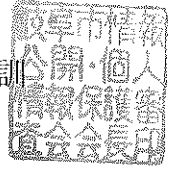 情報
公開・個人
情報保護審
査会会長印